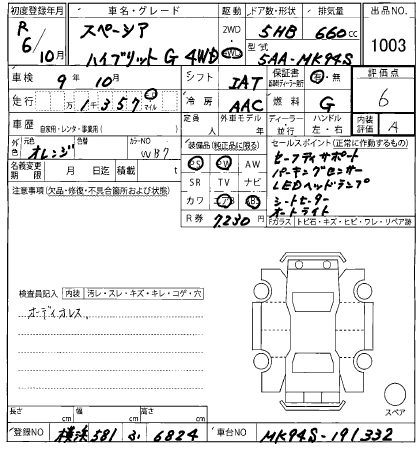 初度登録年月 車名・グレード 駆動 ドア数・形状 排気量 出品NO.
R 6/10月 スペーシア ハイブリッド G 4WD 2WD 4WD 5HB 660cc 1003
型式 5AA-MK94S
車検 9年 10月 シフト IAT 保証書 有・無 評価点
走行 万 1千 357 km マイル 冷房 AAC 燃料 G 6
車歴 自家用・レンタ・事業用( ) 定員 人 外車モデル 年 ディーラー・並行 ハンドル 左・右 内装評価 A
外色 元色 オレンジ 色替 カラーNO WB7 装備品(純正品に限る) セールスポイント(正常に作動するもの)
名義変更期限 月 日 積載 t PS PW AW セーフティサポート
注意事項(欠品・修復・不具合箇所および状態) SR TV ナビ パーキングセンサー
カワ エアB ABS LEDヘッドランプ
R券 7230円 シートヒーター
オートライト
Fガラス トビ石・キズ・ヒビ・ワレ・リペア跡
検査員記入 内装 汚レ・スレ・キズ・キレ・コゲ・穴
オーディオレス
スペア
長さ cm 幅 cm 高さ cm
登録NO 横浜 581 み 6824 車台NO MK94S-191332